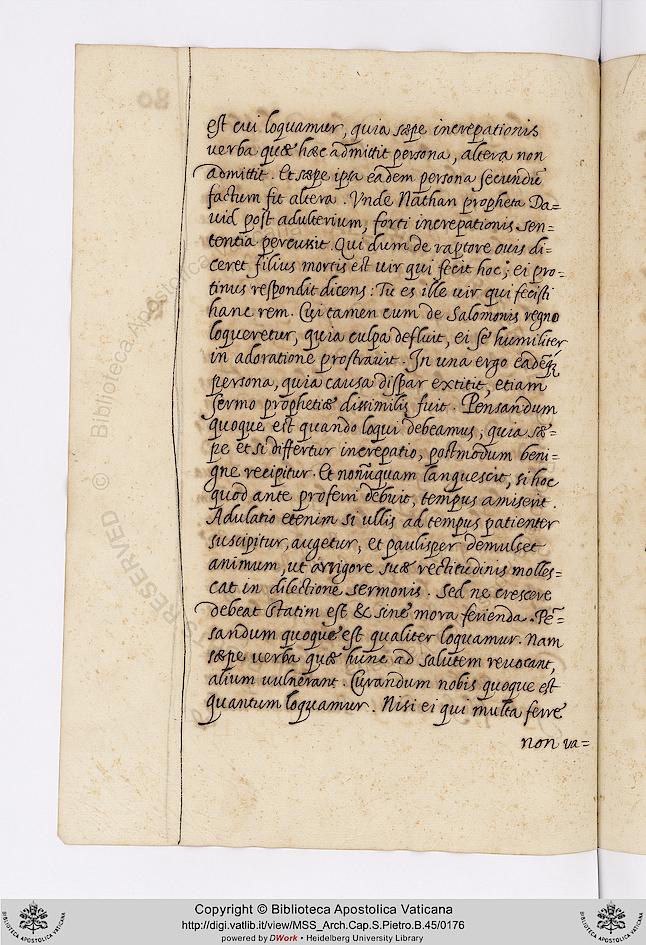 est cui loquamur, quia sæpe increpationis
verba quæ hæc admittit persona, altera non
admittit. Et sæpe ipsa eadem persona secundũ
factum fit altera. Vnde Nathan propheta Da=
uid post adulterium, forti increpationis sen=
tentia percussit. Qui dum de raptore ouis di=
ceret filius mortis est uir qui fecit hoc; ei pro=
tinus respondit dicens: Tu es ille uir qui fecisti
hanc rem. Cui tamen cum de Salomonis regno
loqueretur, quia culpa defluit, ei se humiliter
in adoratione prostrauit. In una ergo eadẽq́ꝫ
persona, quia causa dispar extitit, etiam
sermo prophetiæ dissimilis fuit. Pensandum
quoque est quando loqui debeamus; quia sæ=
pe et si differtur increpatio, postmodum beni=
gne recipitur. Et nonnũquam languescit, si hoc
quod ante proferri debuit, tempus amiserit.
Adulatio etenim si ullis ad tempus patienter
suscipitur, augetur; et paulisper demulset
animum, ut arrigore suæ rectitudinis molles=
cat in dilectione sermonis. Sed ne crescere
debeat statim est & sine mora ferienda. Pẽ=
sandum quoque est qualiter loquamur. Nam
sæpe uerba quæ hunc ad salutem reuocant,
alium uulnerant. Curandum nobis quoque est
quantum loquamur. Nisi ei qui multa ferre
non ua=
Biblioteca Apostolica
RESERVED ©
Copyright © Biblioteca Apostolica Vaticana
http://digi.vatlib.it/view/MSS_Arch.Cap.S.Pietro.B.45/0176
powered by DWork • Heidelberg University Library